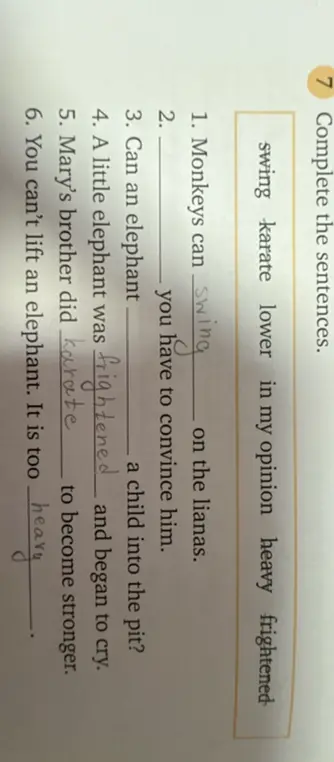 7 Complete the sentences.
swing karate lower in my opinion heavy frightened
1. Monkeys can swing on the lianas.
2. ________ you have to convince him.
3. Can an elephant ________ a child into the pit?
4. A little elephant was frightened and began to cry.
5. Mary's brother did karate to become stronger.
6. You can't lift an elephant. It is too heavy.